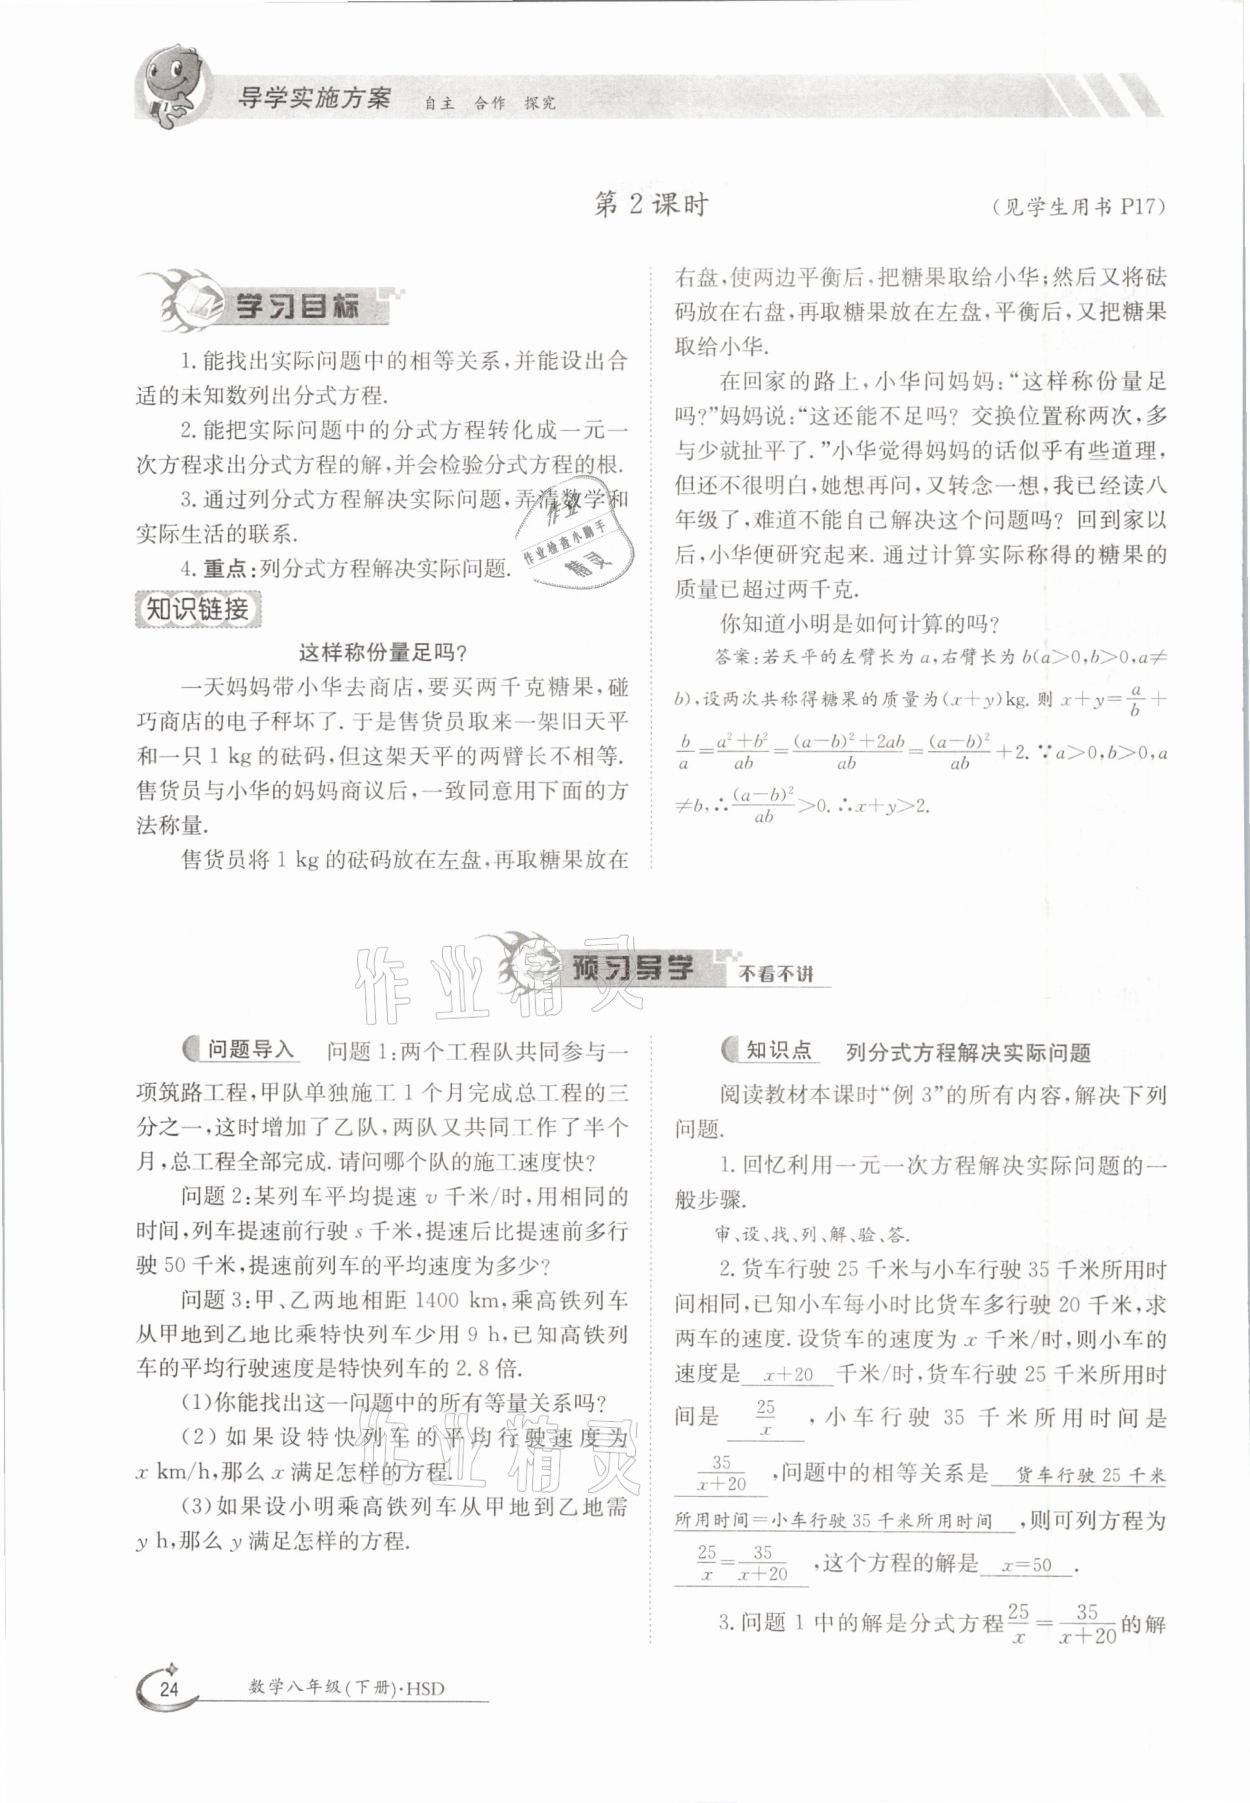 导学实施方案 自主 合作 探究
第 2 课时
(见学生用书 P17)
学习目标
1. 能找出实际问题中的相等关系,并能设出合
适的未知数列出分式方程.
2. 能把实际问题中的分式方程转化成一元一
次方程求出分式方程的解,并会检验分式方程的根.
3. 通过列分式方程解决实际问题,弄清数学和
实际生活的联系.
4. 重点:列分式方程解决实际问题.
知识链接
这样称份量足吗?
一天妈妈带小华去商店,要买两千克糖果,碰
巧商店的电子秤坏了. 于是售货员取来一架旧天平
和一只 1 kg 的砝码,但这架天平的两臂长不相等.
售货员与小华的妈妈商议后,一致同意用下面的方
法称量.
售货员将 1 kg 的砝码放在左盘,再取糖果放在
右盘,使两边平衡后,把糖果取给小华;然后又将砝
码放在右盘,再取糖果放在左盘,平衡后,又把糖果
取给小华.
在回家的路上,小华问妈妈:“这样称份量足
吗?”妈妈说:“这还能不足吗? 交换位置称两次,多
与少就扯平了.”小华觉得妈妈的话似乎有些道理,
但还不很明白,她想再问,又转念一想,我已经读八
年级了,难道不能自己解决这个问题吗? 回到家以
后,小华便研究起来. 通过计算实际称得的糖果的
质量已超过两千克.
你知道小明是如何计算的吗?
答案:若天平的左臂长为 a,右臂长为 b(a>0,b>0,a≠
b),设两次共称得糖果的质量为(x+y)kg. 则 x+y=a/b+
b/a=(a²+b²)/ab=((a-b)²+2ab)/ab=(a-b)²/ab+2. ∵a>0,b>0,a
≠b,∴(a-b)²/ab>0. ∴x+y>2.
作业
作业检查小助手
精灵
作业精灵
预习导学 不看不讲
问题导入 问题 1:两个工程队共同参与一
项筑路工程,甲队单独施工 1 个月完成总工程的三
分之一,这时增加了乙队,两队又共同工作了半个
月,总工程全部完成. 请问哪个队的施工速度快?
问题 2:某列车平均提速 v 千米/时,用相同的
时间,列车提速前行驶 s 千米,提速后比提速前多行
驶 50 千米,提速前列车的平均速度为多少?
问题 3:甲、乙两地相距 1400 km,乘高铁列车
从甲地到乙地比乘特快列车少用 9 h,已知高铁列
车的平均行驶速度是特快列车的 2.8 倍.
(1)你能找出这一问题中的所有等量关系吗?
(2)如果设特快列车的平均行驶速度为
x km/h,那么 x 满足怎样的方程.
(3)如果设小明乘高铁列车从甲地到乙地需
y h,那么 y 满足怎样的方程.
作业精灵
知识点 列分式方程解决实际问题
阅读教材本课时“例 3”的所有内容,解决下列
问题.
1. 回忆利用一元一次方程解决实际问题的一
般步骤.
审、设、找、列、解、验、答.
2. 货车行驶 25 千米与小车行驶 35 千米所用时
间相同,已知小车每小时比货车多行驶 20 千米,求
两车的速度. 设货车的速度为 x 千米/时,则小车的
速度是 x+20 千米/时,货车行驶 25 千米所用时
间是 25/x ,小车行驶 35 千米所用时间是
35/(x+20) ,问题中的相等关系是 货车行驶 25 千米
所用时间=小车行驶 35 千米所用时间 ,则可列方程为
25/x=35/(x+20) ,这个方程的解是 x=50 .
3. 问题 1 中的解是分式方程25/x=35/(x+20)的解
24 数学八年级(下册)·HSD